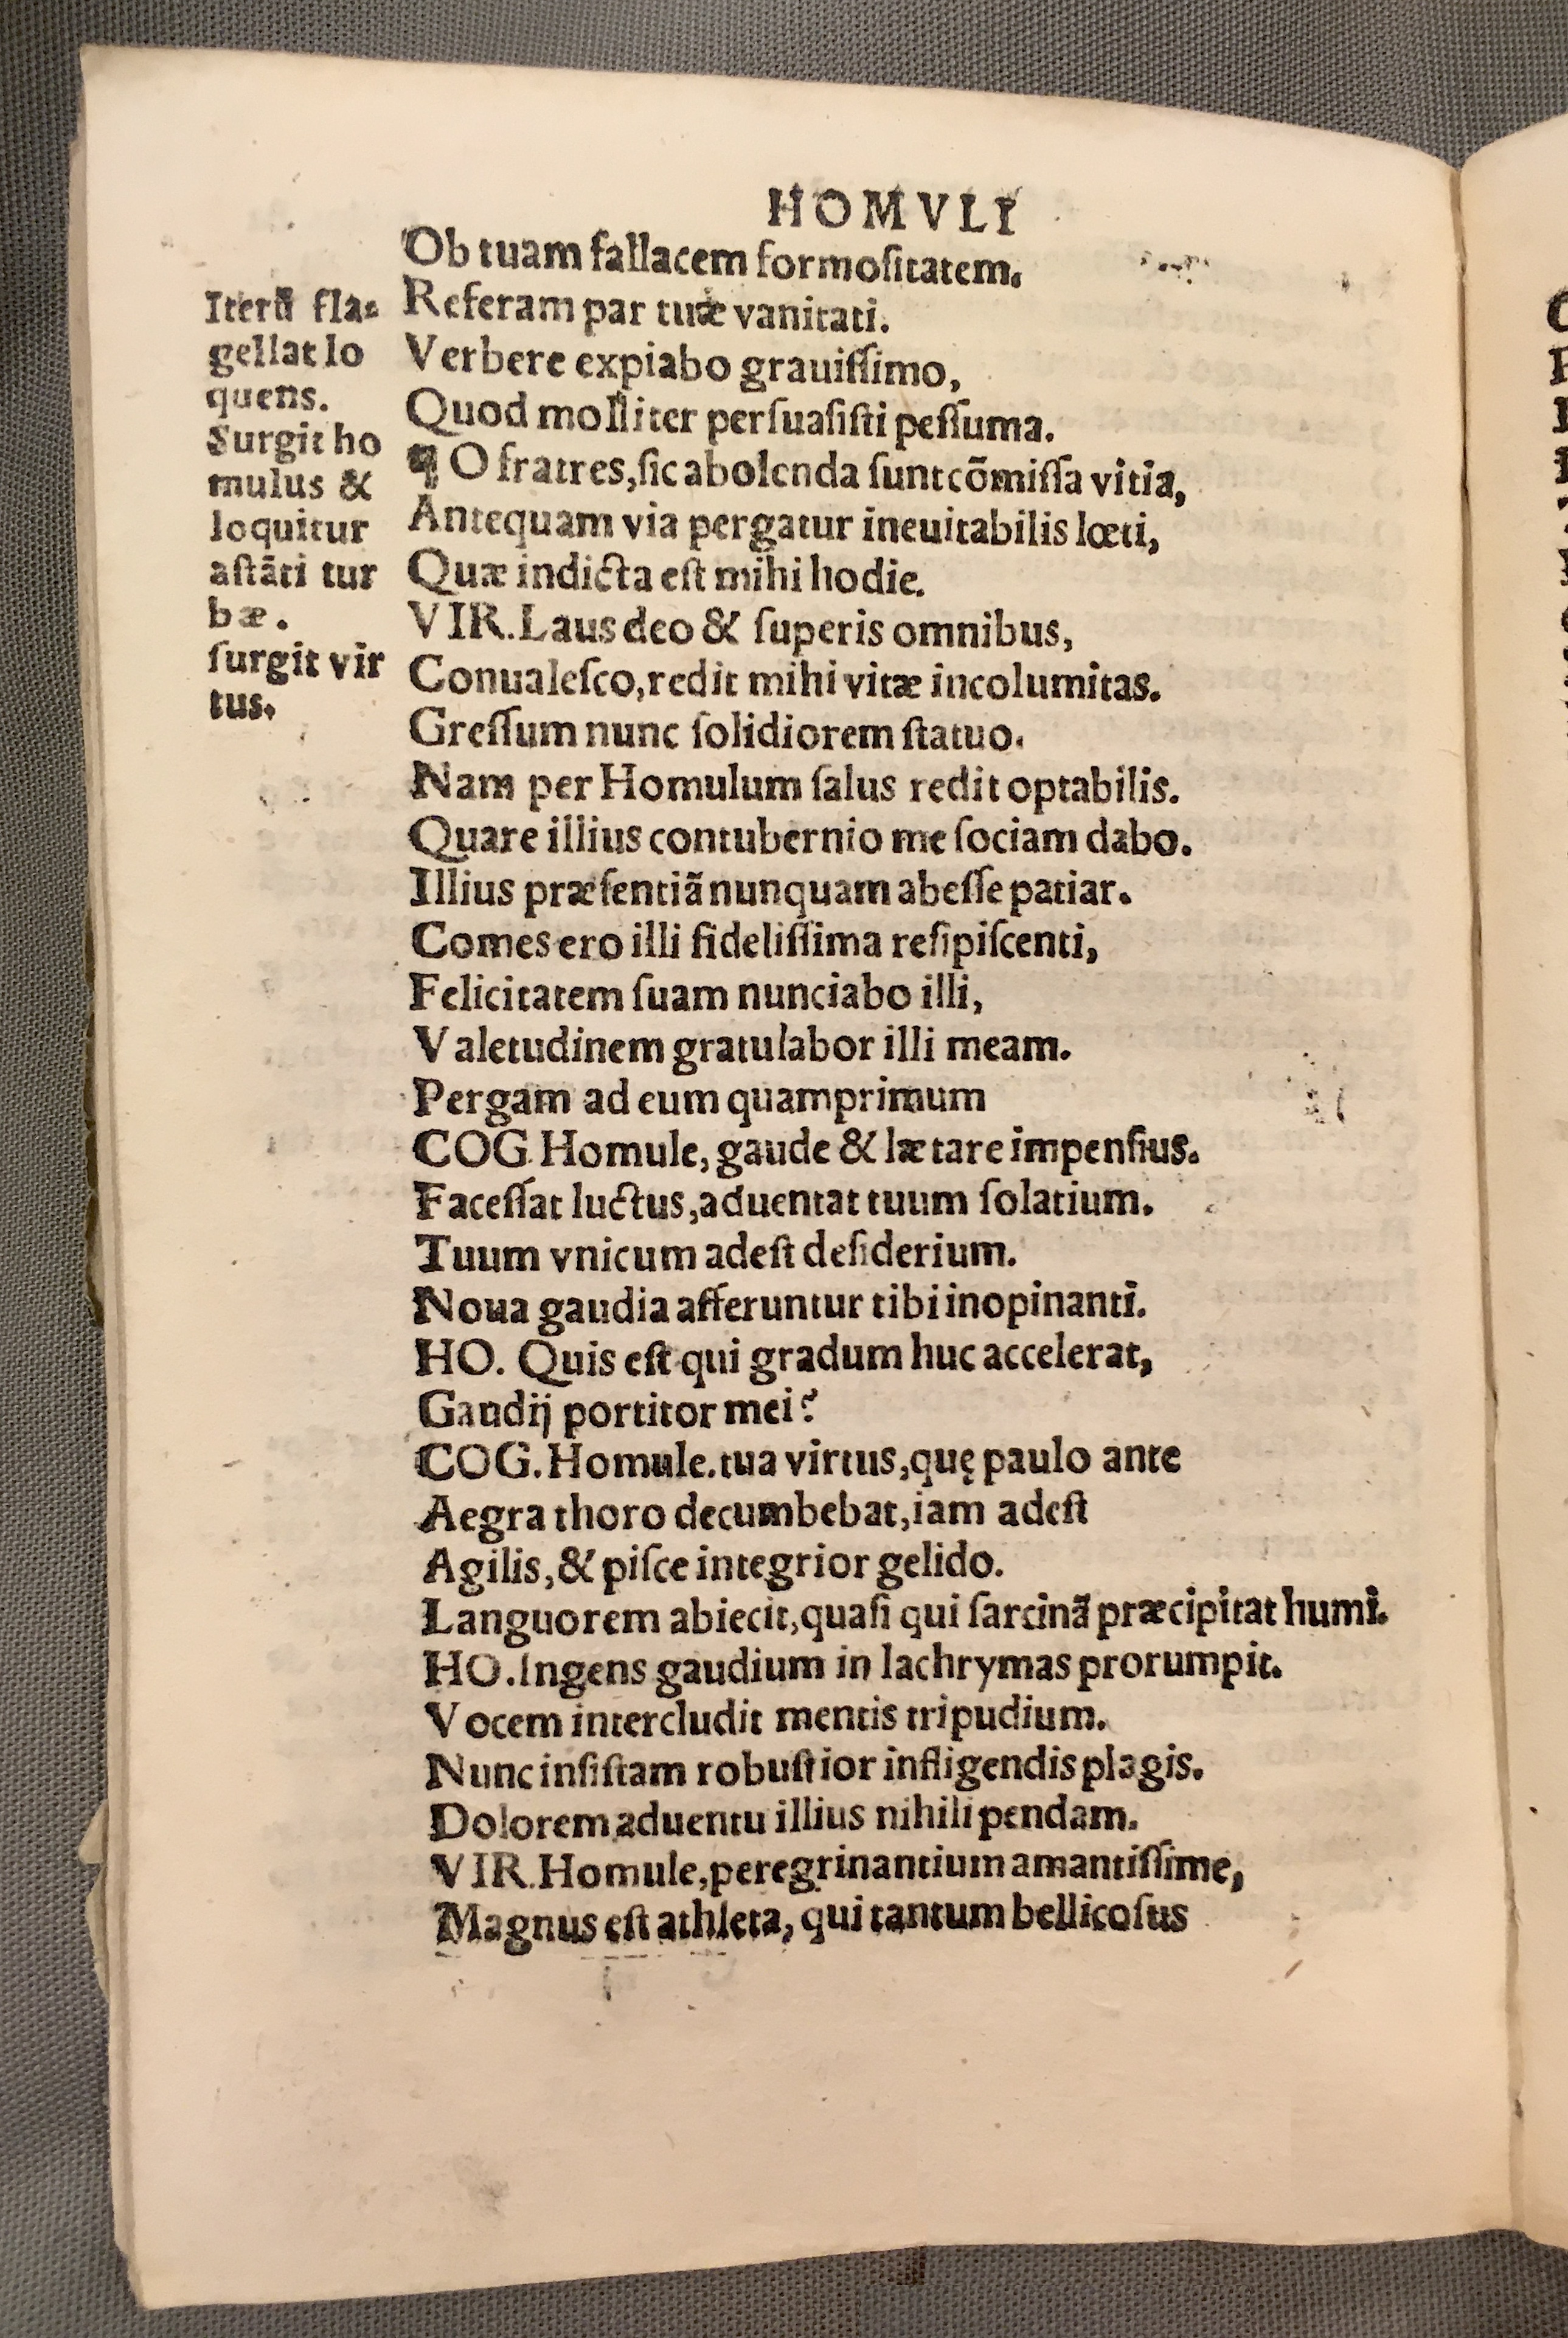 HOMVLI
Ob tuam fallacem formoſitatem.
Referam par tuæ vanitati.
Verbere expiabo grauiſſimo,
Quod molliter perſuaſiſti peſſuma.
¶ O fratres, ſic abolenda ſunt cõmiſſa vitia,
Antequam via pergatur ineuitabilis lœti,
Quæ indicta eſt mihi hodie.
VIR. Laus deo & ſuperis omnibus,
Conualeſco, redit mihi vitæ incolumitas.
Greſſum nunc ſolidiorem ſtatuo.
Nam per Homulum ſalus redit optabilis.
Quare illius contubernio me ſociam dabo.
Illius præſentiã nunquam abeſſe patiar.
Comes ero illi fideliſſima reſipiſcenti,
Felicitatem ſuam nunciabo illi,
Valetudinem gratulabor illi meam.
Pergam ad eum quamprimum
COG Homule, gaude & lætare impenſius.
Faceſſat luctus, aduentat tuum ſolatium.
Tuum vnicum adeſt deſiderium.
Noua gaudia afferuntur tibi inopinanti.
HO. Quis eſt qui gradum huc accelerat,
Gaudij portitor mei?
COG. Homule. tua virtus, quę paulo ante
Aegra thoro decumbebat, iam adeſt
Agilis, & piſce integrior gelido.
Languorem abiecit, quaſi qui ſarcinã præcipitat humi.
HO. Ingens gaudium in lachrymas prorumpit.
Vocem intercludit mentis tripudium.
Nunc inſiſtam robuſtior infligendis plagis.
Dolorem aduentu illius nihili pendam.
VIR. Homule, peregrinantium amantiſſime,
Magnus eſt athleta, qui tantum bellicoſus
Iterũ fla=
gellat lo
quens.
Surgit ho
mulus &
loquitur
aſtãti tur
bæ.
ſurgit vir
tus.